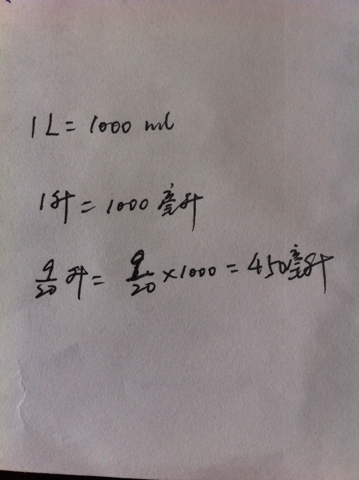 1L = 1000 ml
1升 = 1000 毫升
9/20 升 = 9/20 ×1000 = 450毫升